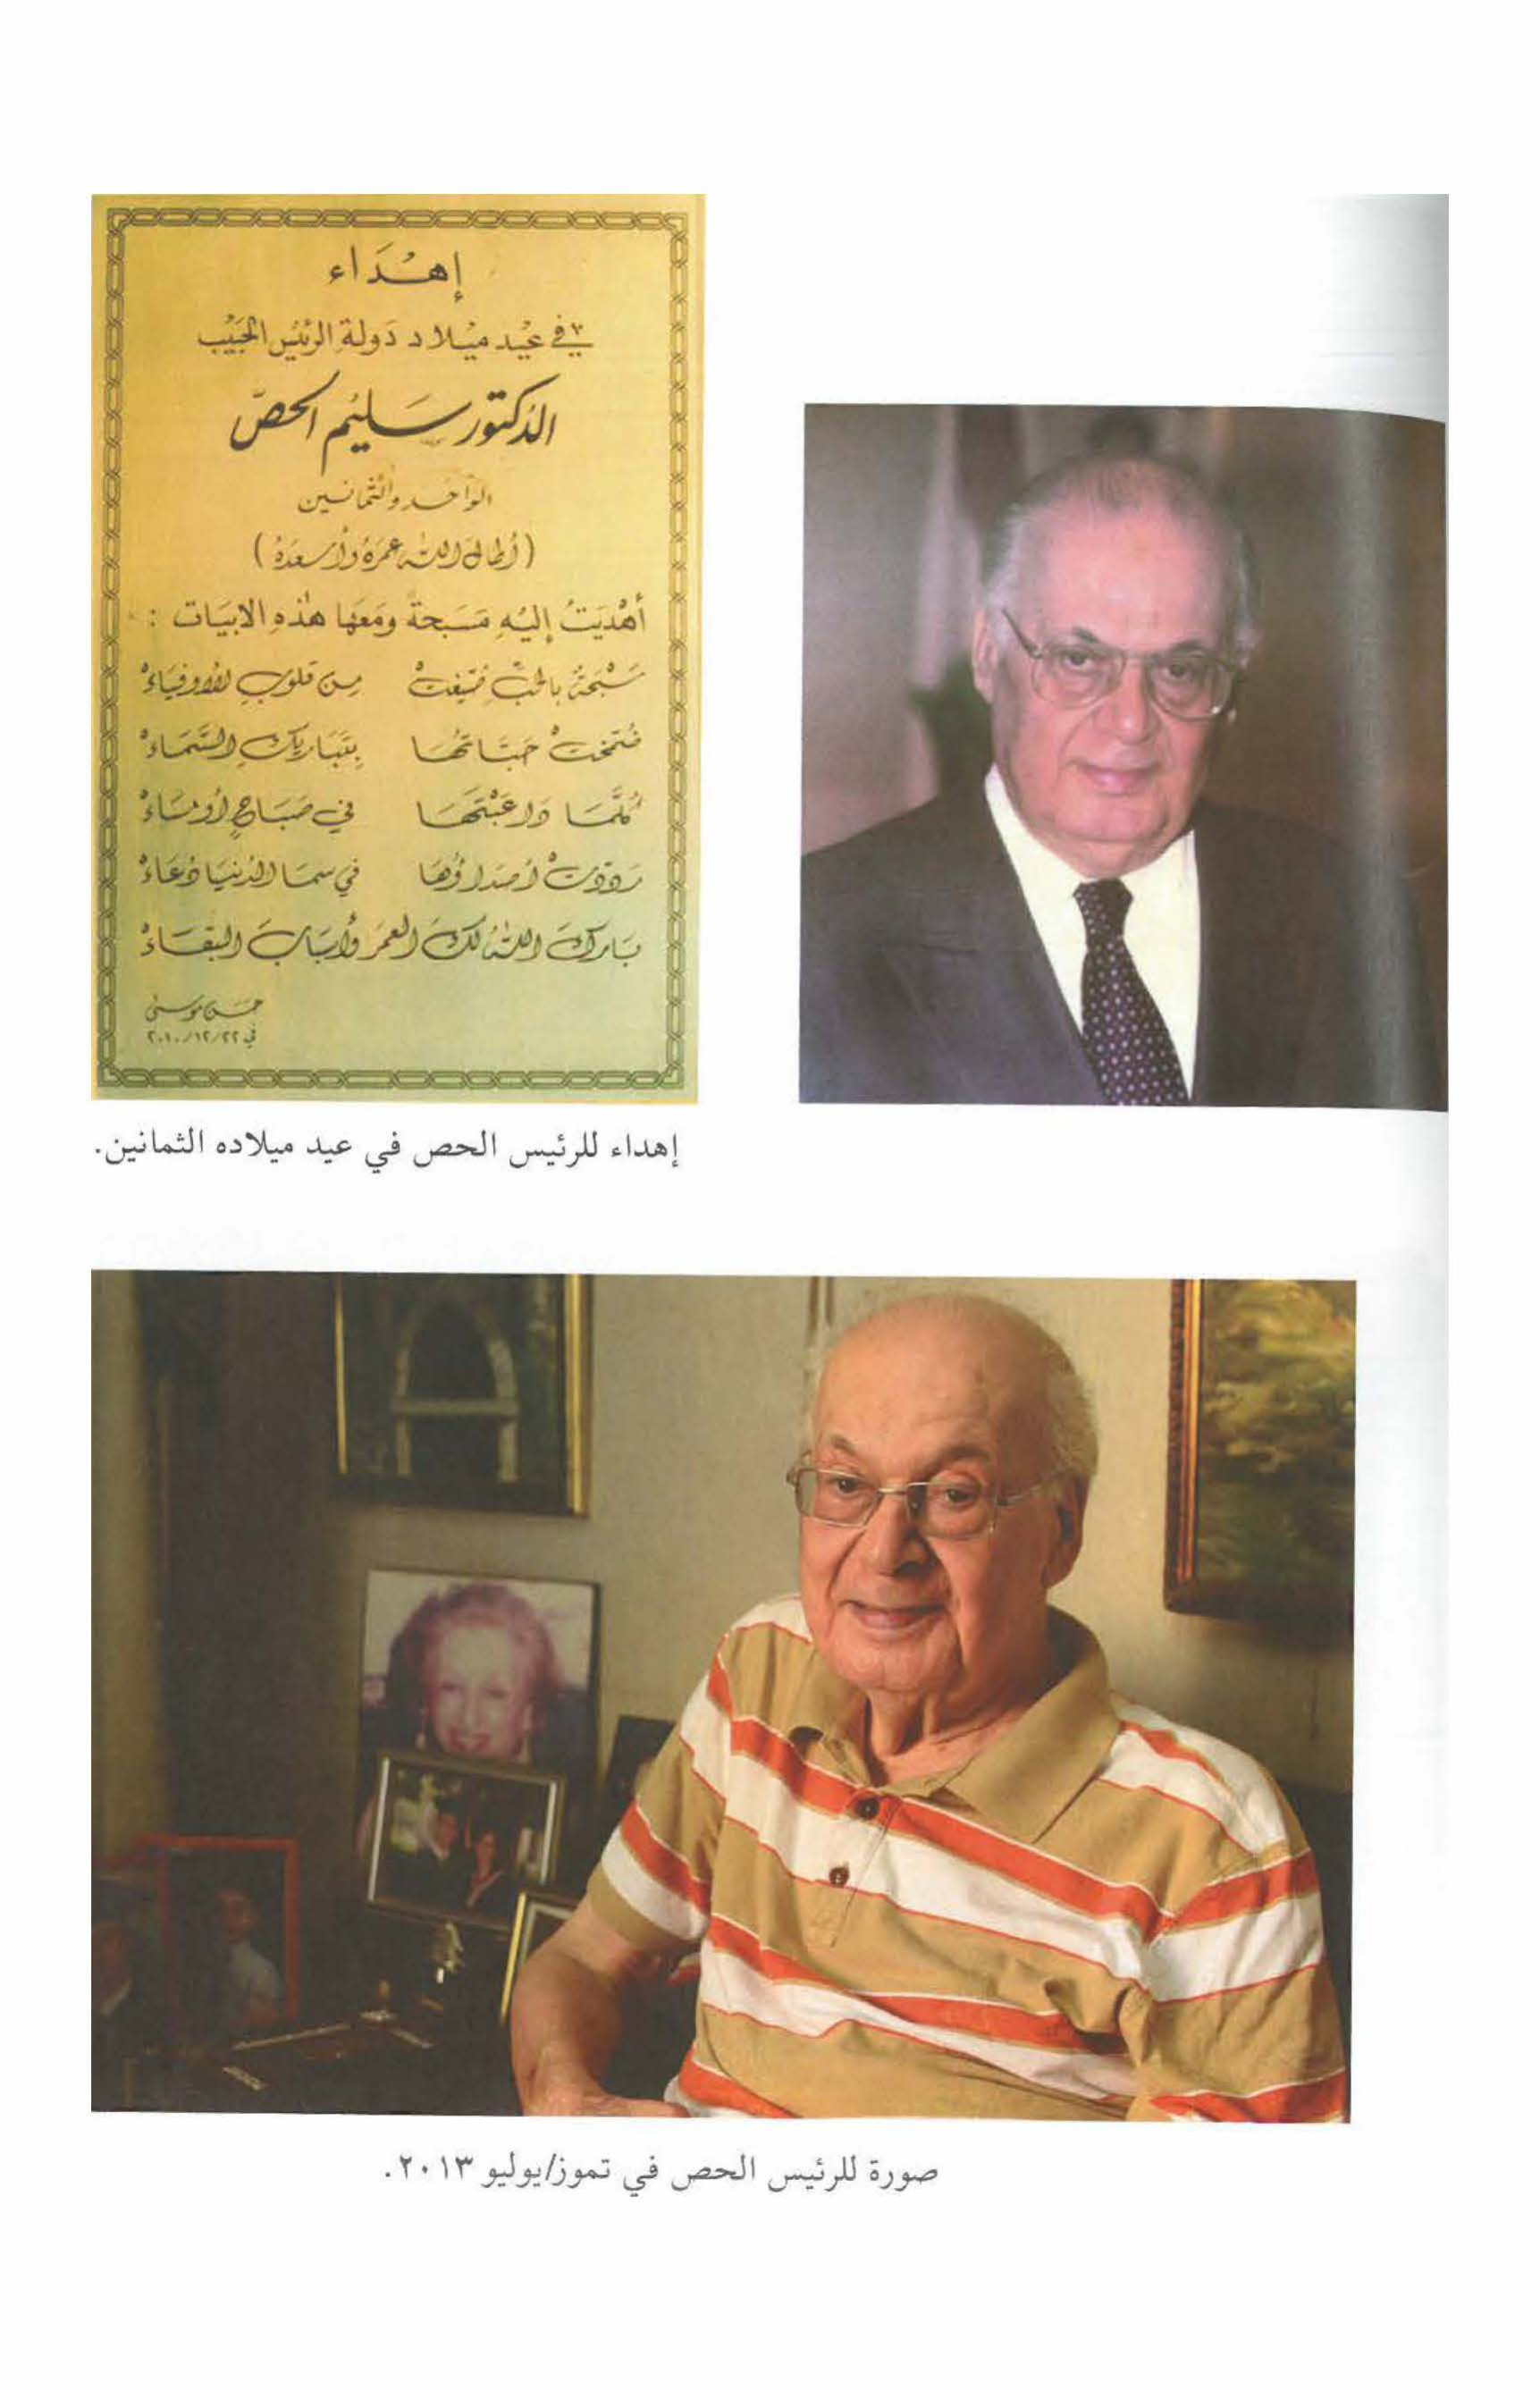 إهْدَاء
في عِيْد ميْلاد دَولة الرئيْس الحَبيْب
الدكتور سَليْم الحصّ
الوَاحَد والثمَانين
(أطال اللّٰه عمرَهُ وأسعدَهُ)
أهْدَيتُ إليْهِ مَسَبحةً ومَعَها هٰذِهِ الابيَات :
سَبْحَةٌ بالحُبِّ صِيْغَتْ مِن قلوبِ الأوفيَاءْ
ضُمِّخَتْ حَبَّاتُهَا بِتَبَاريكِ السَّمَاءْ
كُلَّمَا دَاعَبْتَهَا في صَبَاحٍ أو مسَاءْ
رَدَّدَتْ أصدَاؤُهَا في سمَا الدُنيَا دُعَاءْ
بَاركَ اللّٰهُ لكَ العمرَ وأسبَابَ البَقَاءْ
حسَن موسىٰ
في ٢٠١٠/١٢/٢٢
إهداء للرئيس الحص في عيد ميلاده الثمانين.
صورة للرئيس الحص في تموز/يوليو ٢٠١٣.